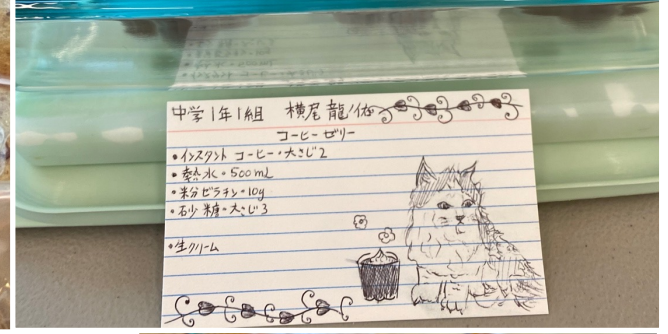 中学1年1組 横尾 龍ノ佑
コーヒーゼリー
・インスタント コーヒー・大さじ2
・熱水・500mL
・粉ゼラチン・10g
・砂糖・大さじ3
・生クリーム